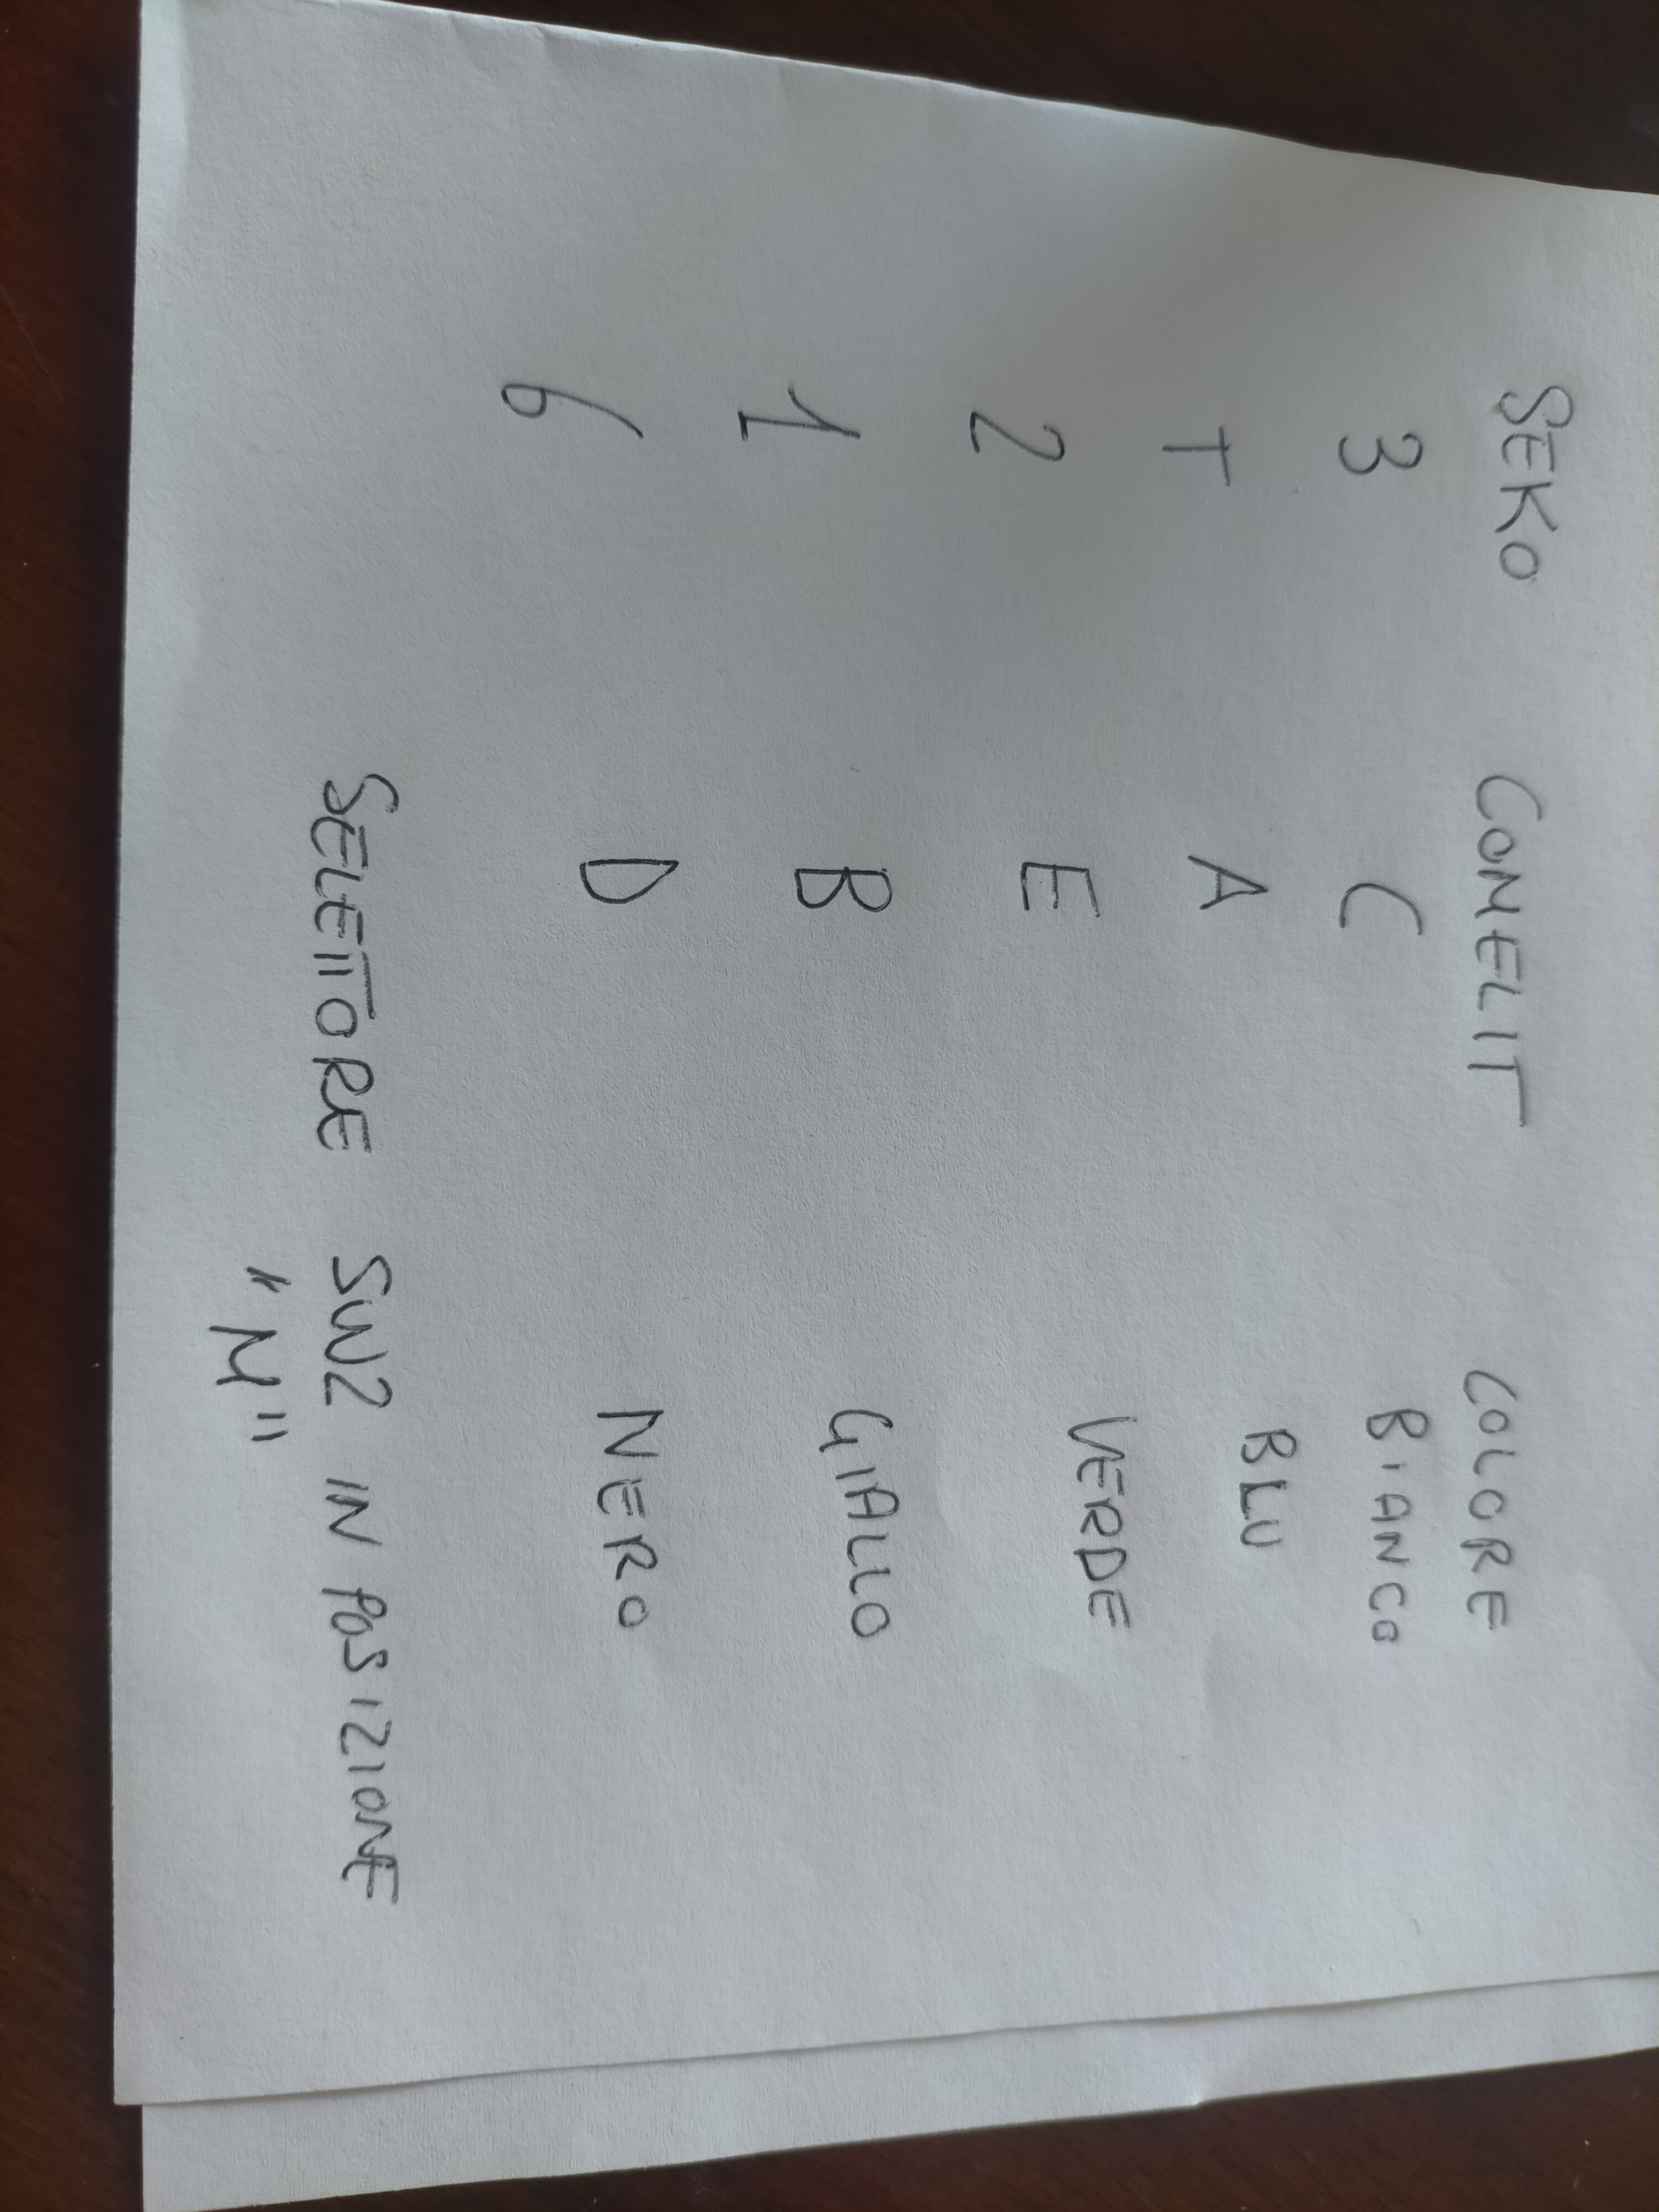 SEKO COMELIT COLORE
3 C BIANCO
T A BLU
2 E VERDE
1 B GIALLO
6 D NERO
SELETTORE SW2 IN POSIZIONE
"M"